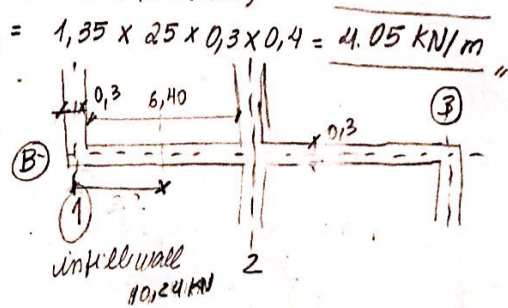 = 1,35 x 25 x 0,3 x 0,4 = 4.05 KN/m "
0,3 6,40
0,3
3
B
1
2
infill wall
10,24 KN